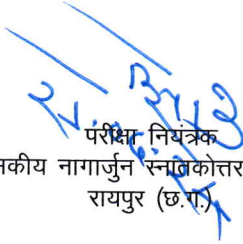 परीक्षा नियंत्रक
नकीय नागार्जुन स्नातकोत्तर
रायपुर (छ.ग.)